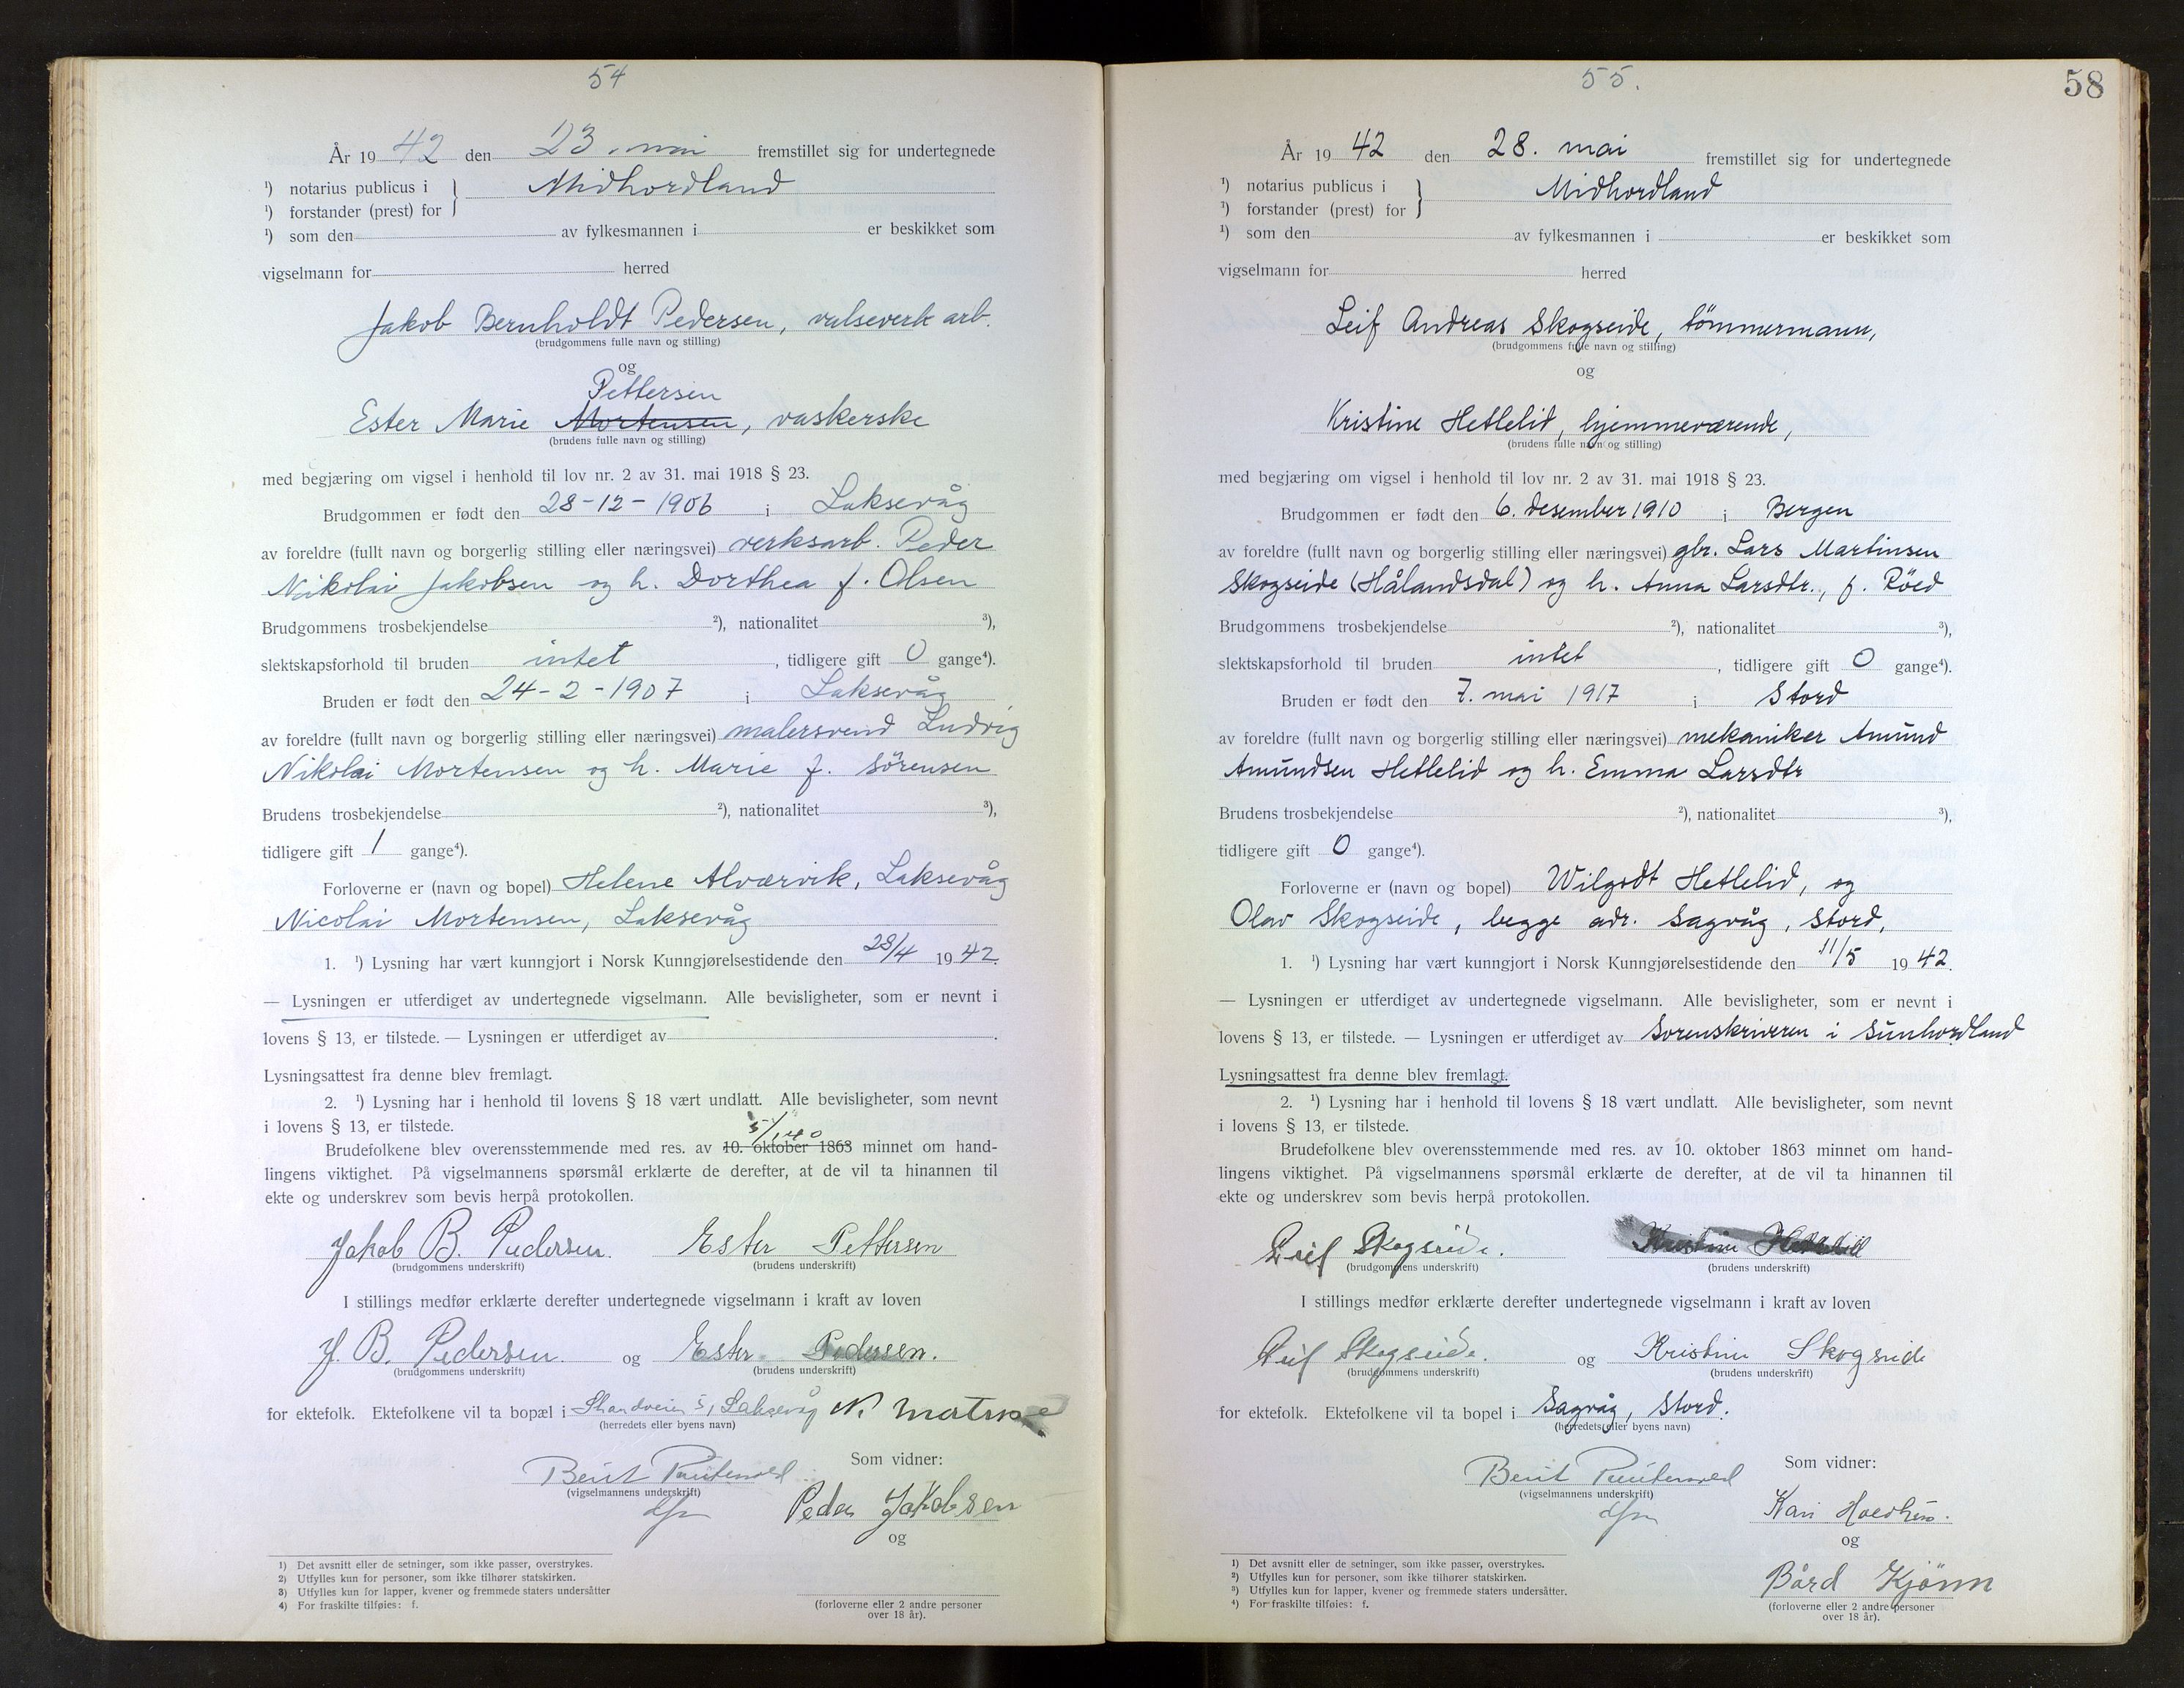 54
År 19 42 den 23. mai fremstillet sig for undertegnede
¹) notarius publicus i } Midhordland
¹) forstander (prest) for
¹) som den av fylkesmannen i er beskikket som
vigselmann for herred
Jakob Bernholdt Pedersen, valseverk arb.
(brudgommens fulle navn og stilling)
og
Pettersen
Ester Marie Mortensen, vaskerske
(brudens fulle navn og stilling)
med begjæring om vigsel i henhold til lov nr. 2 av 31. mai 1918 § 23.
Brudgommen er født den 28-12-1906 i Laksevåg
av foreldre (fullt navn og borgerlig stilling eller næringsvei) verksarb. Peder
Nikolai Jakobsen og h. Dorthea f. Olsen
Brudgommens trosbekjendelse ²), nationalitet ³),
slektskapsforhold til bruden intet, tidligere gift 0 gange⁴).
Bruden er født den 24-2-1907 i Laksevåg
av foreldre (fullt navn og borgerlig stilling eller næringsvei) malersvend Ludvig
Nikolai Mortensen og h. Marie f. Sörensen
Brudens trosbekjendelse ²), nationalitet ³),
tidligere gift 1 gange⁴).
Forloverne er (navn og bopel) Helene Alværvik, Laksevåg
Nicolai Mortensen, Laksevåg
1. ¹) Lysning har vært kunngjort i Norsk Kunngjørelsestidende den 28/4 19 42.
— Lysningen er utferdiget av undertegnede vigselmann. Alle bevisligheter, som er nevnt i
lovens § 13, er tilstede. — Lysningen er utferdiget av .
Lysningsattest fra denne blev fremlagt.
2. ¹) Lysning har i henhold til lovens § 18 vært undlatt. Alle bevisligheter, som nevnt
i lovens § 13, er tilstede.
Brudefolkene blev overensstemmende med res. av 10. oktober 1863 minnet om hand-
lingens viktighet. På vigselmannens spørsmål erklærte de derefter, at de vil ta hinannen til
ekte og underskrev som bevis herpå protokollen.
Jakob B. Pedersen. Ester Pettersen
(brudgommens underskrift) (brudens underskrift)
I stillings medfør erklærte derefter undertegnede vigselmann i kraft av loven
J. B. Pedersen. og Ester Pedersen.
(brudgommens underskrift) (brudens underskrift)
for ektefolk. Ektefolkene vil ta bopæl i Laksevåg N.
(herredets eller byens navn)
Som vidner:
Berit
(vigselmannens underskrift)
Peder Jakobsen
og
1) Det avsnitt eller de setninger, som ikke passer, overstrykes.
2) Utfylles kun for personer, som ikke tilhører statskirken.
3) Utfylles kun for lapper, kvener og fremmede staters undersåtter
4) For fraskilte tilføies: f.
(forloverne eller 2 andre personer
over 18 år).
55.
58
År 19 42 den 28. mai fremstillet sig for undertegnede
¹) notarius publicus i } Midhordland
¹) forstander (prest) for
¹) som den av fylkesmannen i er beskikket som
vigselmann for herred
Leif Andreas Skogseide, tömmermann,
(brudgommens fulle navn og stilling)
og
Kristine Hetlelid, hjemmeværende,
(brudens fulle navn og stilling)
med begjæring om vigsel i henhold til lov nr. 2 av 31. mai 1918 § 23.
Brudgommen er født den 6. desember 1910 i Bergen
av foreldre (fullt navn og borgerlig stilling eller næringsvei) gbr. Lars Martinsen
Skogseide (Hålandsdal) og h. Anna Larsdtr., f. Röed
Brudgommens trosbekjendelse ²), nationalitet ³),
slektskapsforhold til bruden intet, tidligere gift 0 gange⁴).
Bruden er født den 7. mai 1917 i Stord
av foreldre (fullt navn og borgerlig stilling eller næringsvei) mekaniker Amund
Amundsen Hetlelid og h. Emma Larsdtr
Brudens trosbekjendelse ²), nationalitet ³),
tidligere gift 0 gange⁴).
Forloverne er (navn og bopel) Wilgodt Hetlelid, og
Olav Skogseide, begge adr. Sagvåg, Stord,
1. ¹) Lysning har vært kunngjort i Norsk Kunngjørelsestidende den 11/5 19 42.
— Lysningen er utferdiget av undertegnede vigselmann. Alle bevisligheter, som er nevnt i
lovens § 13, er tilstede. — Lysningen er utferdiget av Sorenskriveren i Sunhordland
Lysningsattest fra denne blev fremlagt.
2. ¹) Lysning har i henhold til lovens § 18 vært undlatt. Alle bevisligheter, som nevnt
i lovens § 13, er tilstede.
Brudefolkene blev overensstemmende med res. av 10. oktober 1863 minnet om hand-
lingens viktighet. På vigselmannens spørsmål erklærte de derefter, at de vil ta hinannen til
ekte og underskrev som bevis herpå protokollen.
Leif Skogseide. Kristine
(brudgommens underskrift) (brudens underskrift)
I stillings medfør erklærte derefter undertegnede vigselmann i kraft av loven
Leif Skogseide. og Kristine Skogseide
(brudgommens underskrift) (brudens underskrift)
for ektefolk. Ektefolkene vil ta bopel i Sagvåg, Stord.
(herredets eller byens navn)
Som vidner:
Berit
(vigselmannens underskrift)
Kari
og
Bård Kjönn
1) Det avsnitt eller de setninger, som ikke passer, overstrykes.
2) Utfylles kun for personer, som ikke tilhører statskirken.
3) Utfylles kun for lapper, kvener og fremmede staters undersåtter.
4) For fraskilte tilføies: f.
(forloverne eller 2 andre personer
over 18 år).